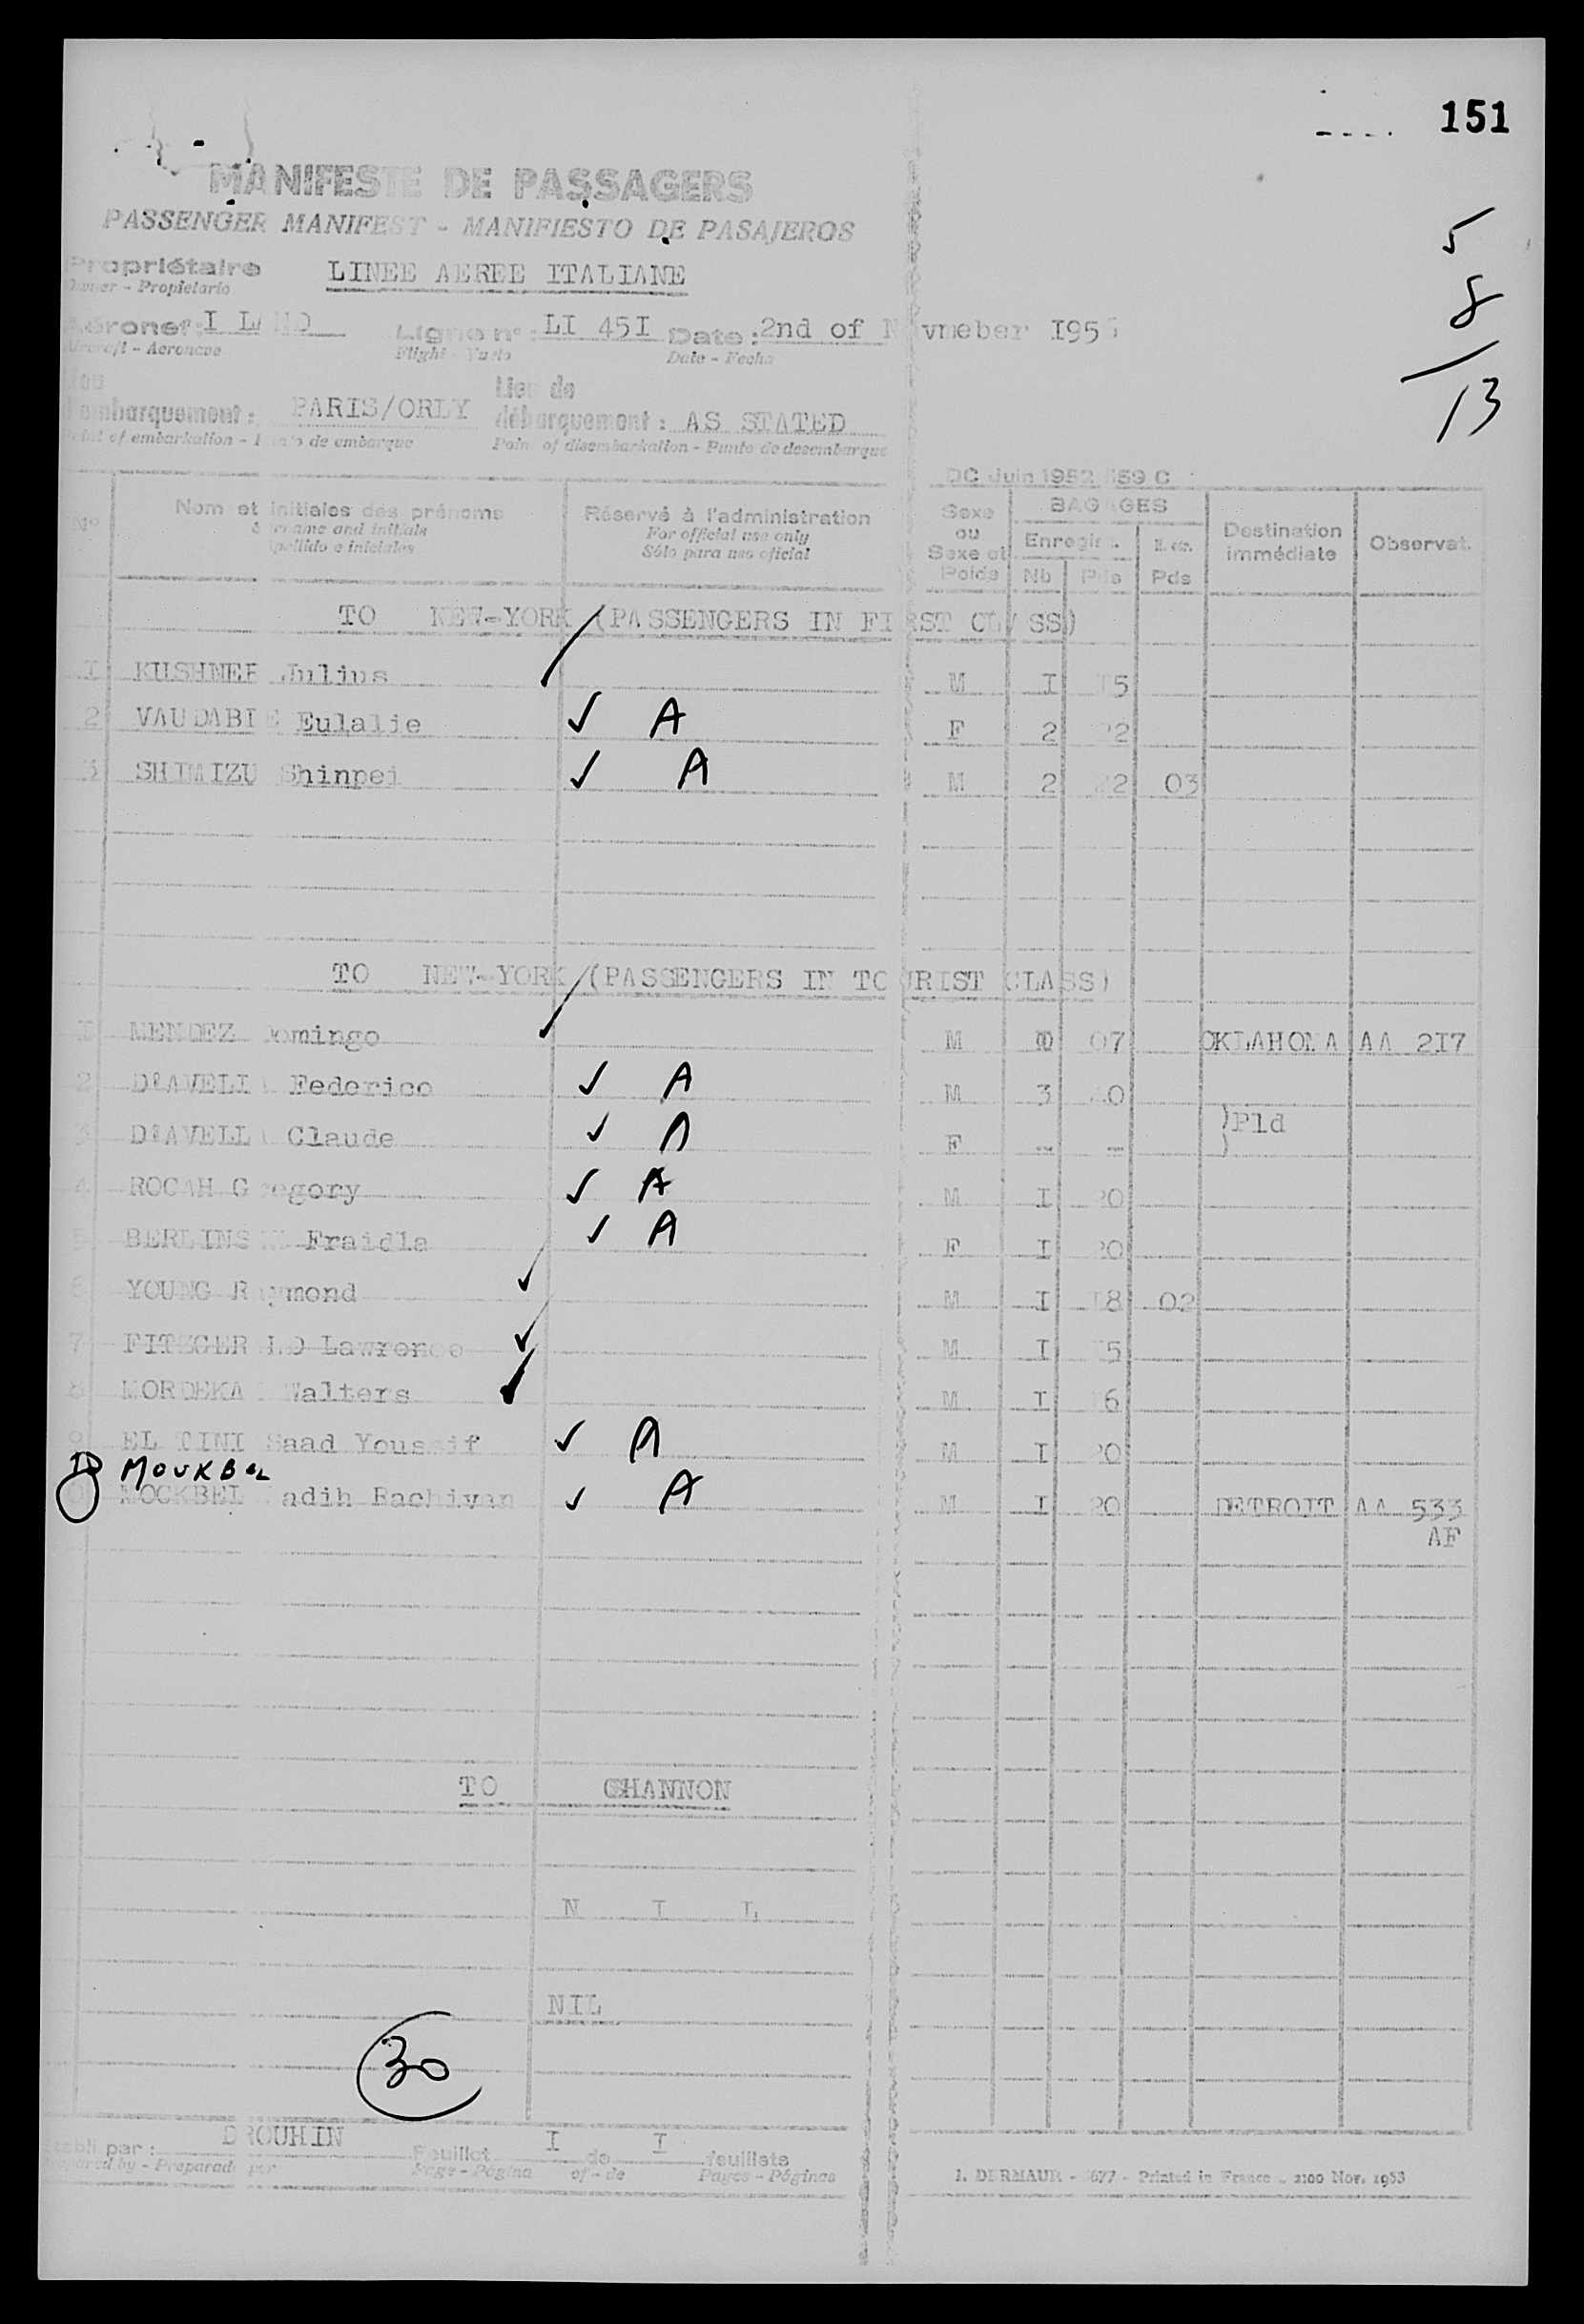 151
MANIFESTE DE PASSAGERS
PASSENGER MANIFEST - MANIFIESTO DE PASAJEROS
5
8
13
Propriétaire LINEE AEREE ITALIANE
Owner - Propietario
Aéronef: I LAND Ligne n°: LI 45I Date: 2nd of Novmeber I95
Aircraft - Aeronave Flight - Vuelo Date - Fecha
Lieu Lieu de
d'embarquement: PARIS/ORLY débarquement: AS STATED
Point of embarkation - Punto de embarque Point of disembarkation - Punto de desembarque
DC Juin 1952 559 C
N° Nom et initiales des prénoms Réservé à l'administration Sexe ou Sexe et Poids BAGAGES Destination immédiate Observat.
Surname and initials For official use only Enregist.
Apellido e iniciales Sólo para uso oficial Nb Pds Pds
TO NEW-YORK (PASSENGERS IN FIRST CLASS)
I KUSHNER Julius M I I5
2 VAUDABLE Eulalie ✓ A F 2 22
3 SHIMIZU Shinpei ✓ A M 2 22 03
TO NEW-YORK (PASSENGERS IN TOURIST CLASS)
I MENDEZ Domingo M 07 OKLAHOMA AA 2I7
2 D'AVELLA Federico ✓ A M 3 40
)Pld
3 D'AVELLA Claude ✓ A F - - )
4 ROCAH Gregory ✓ A M I 20
5 BERLINSKI Fraidla ✓ A F I 20
6 YOUNG Raymond ✓ M I I8 02
7 FITZGERALD Lawrence ✓ M I I5
8 MORDEKAI Walters ✓ M I I6
9 EL TINI Saad Youssif ✓ A M I 20
10 MOUKBEL
MOCKBEL Wadih Rachiyan ✓ A M I 20 DETROIT AA 533
AF
TO SHANNON
N I L
NIL
30
Etabli par: DROUHIN Feuillet I de I feuillets
Prepared by - Preparado por Page - Página of - de Pages - Páginas
J. DERMAUR - 3677 - Printed in France - 2100 Nov. 1953